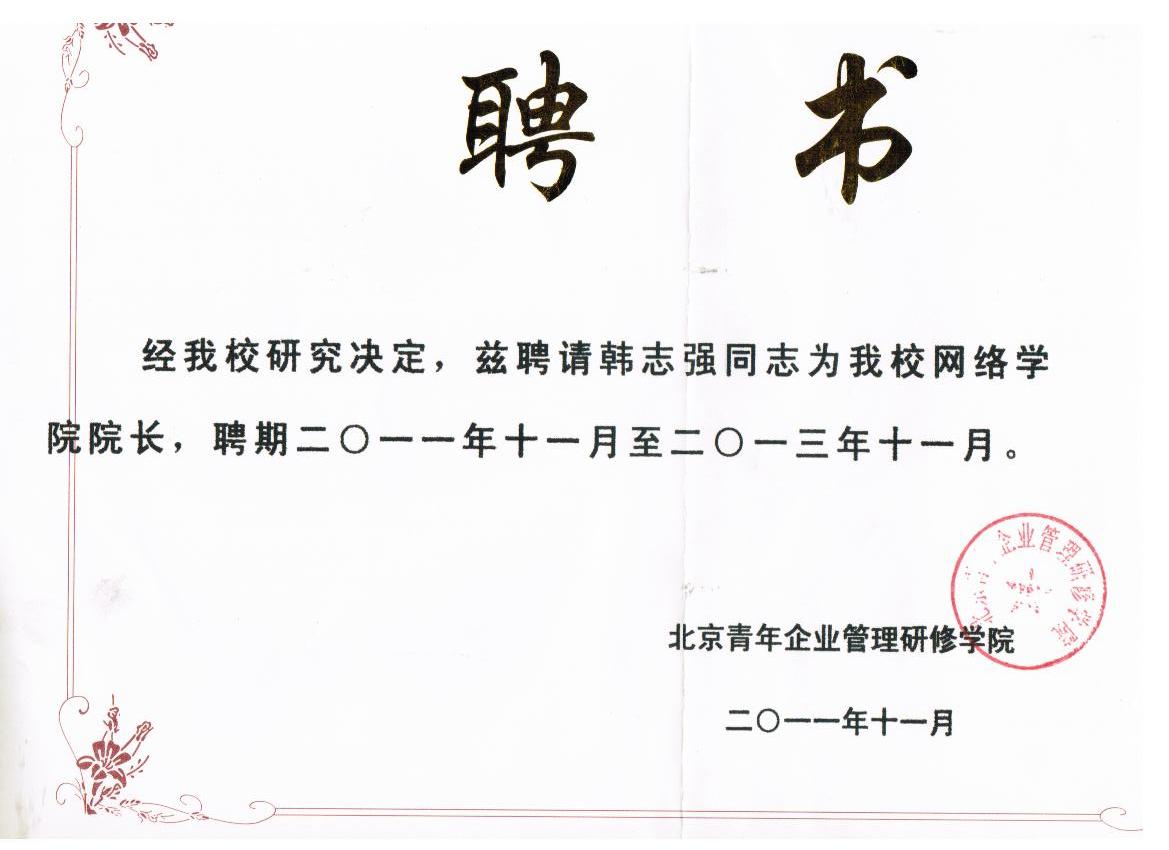 聘书
经我校研究决定，兹聘请韩志强同志为我校网络学
院院长，聘期二〇一一年十一月至二〇一三年十一月。
企业管理研修学院
北京青年企业管理研修学院
二〇一一年十一月